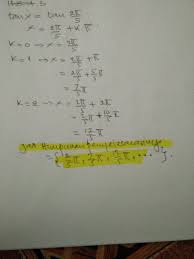 tan x = tan 2π/5
x = 2π/5 + k π
k = 0 → x = 2π/5
k = 1 → x = 2π/5 + π
= 2π/5 + 5/5 π
= 7/5 π
k = 2 → x = 2π/5 + 2π
= 2π/5 + 10/5 π
= 12/5 π
Jadi himpunan penyelesaiannya
= {2/5 π, 7/5 π, 12/5 π, ....}.